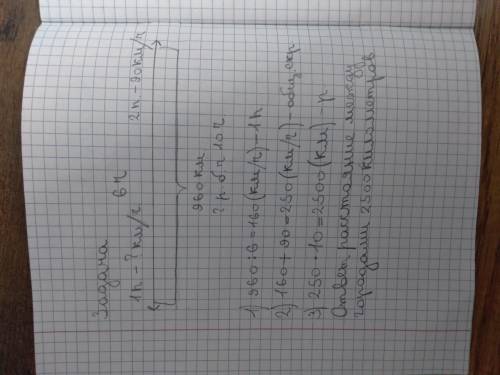 Задача
1п - ? км/ч 6ч 2п - 90км/ч
960 км
? р б ч 10 ч
1) 960 : 6 = 160 (км/ч) - 1п
2) 160 + 90 = 250 (км/ч) - общ. скр.
3) 250 · 10 = 2500 (км) - р
Ответ: расстояние между
городами 2500 километров